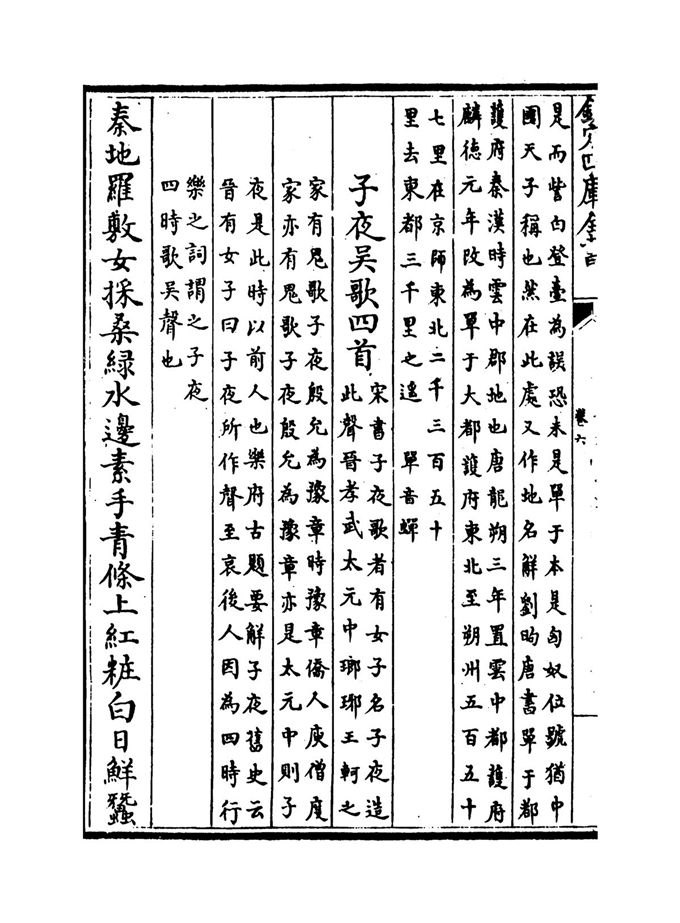 欽定四庫全書
卷六
是而訾白登臺為誤恐未是單于本是匈奴位號猶中
國天子稱也然在此處又作地名解劉昫唐書單于都
護府秦漢時雲中郡地也唐龍朔三年置雲中都護府
麟德元年改為單于大都護府東北至朔州五百五十
七里在京師東北二千三百五十
里去東都三千里之遙 單音蟬
子夜吳歌四首
宋書子夜歌者有女子名子夜造
此聲晉孝武太元中瑯琊王軻之
家有鬼歌子夜殷允為豫章時豫章僑人庾僧度
家亦有鬼歌子夜殷允為豫章亦是太元中則子
夜是此時以前人也樂府古題要解子夜舊史云
晉有女子曰子夜所作聲至哀後人因為四時行
樂之詞謂之子夜
四時歌吳聲也
秦地羅敷女採桑緑水邊素手青條上紅粧白日鮮蠶